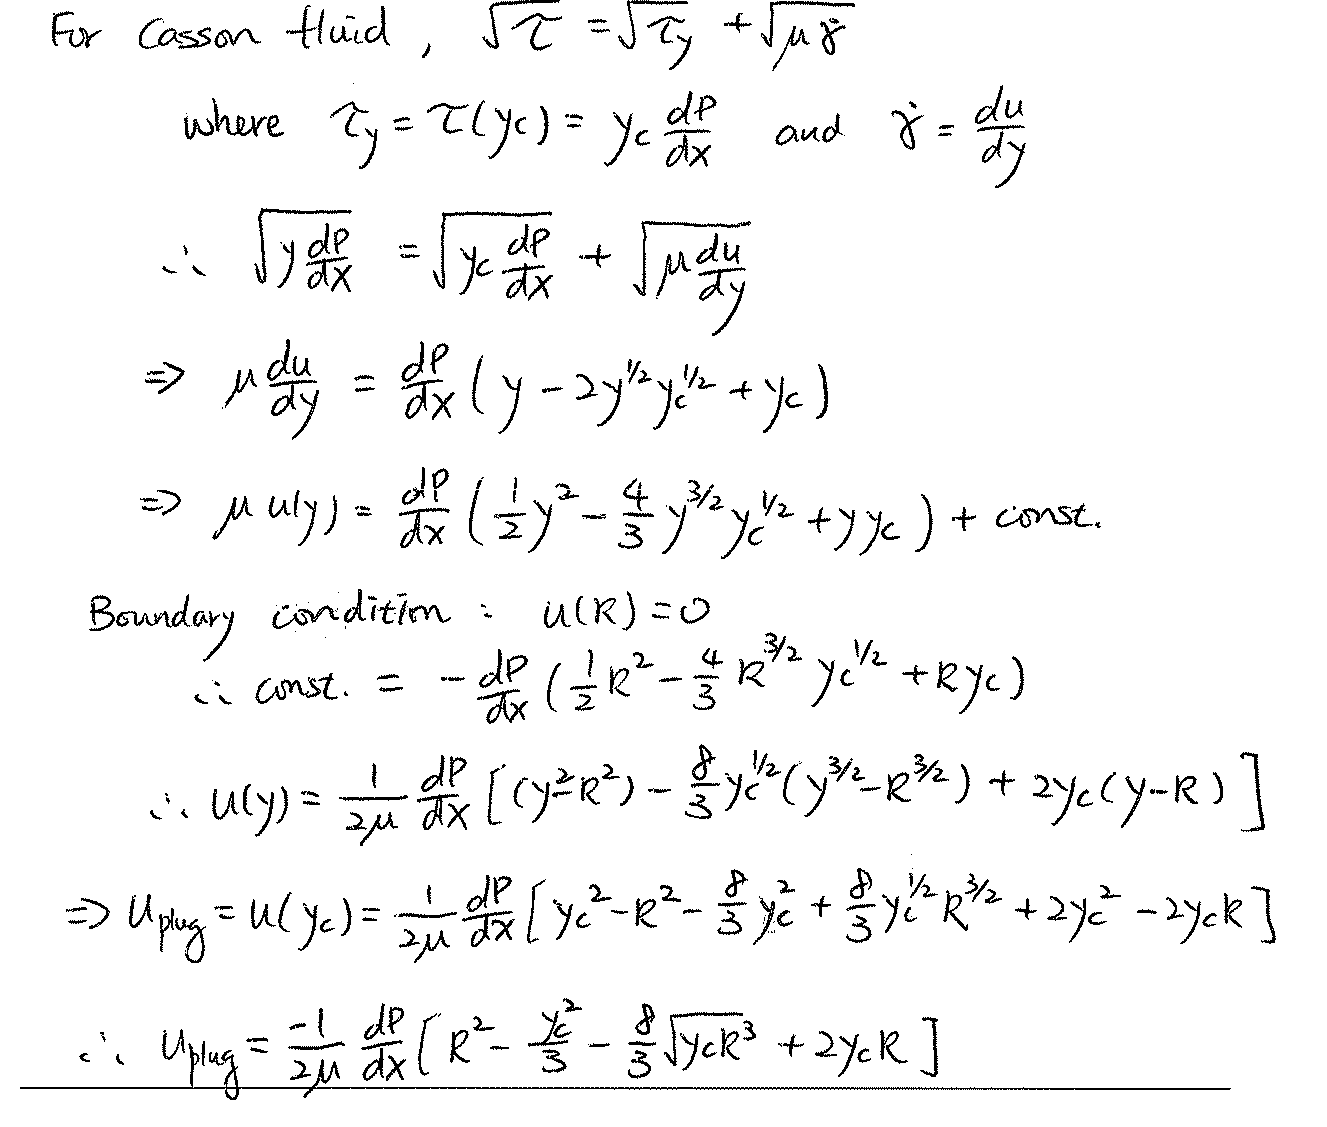 For Casson fluid, √τ = √τ_y + √(μγ̇)
where τ_y = τ(y_c) = y_c dP/dx and γ̇ = du/dy
∴ √(y dP/dx) = √(y_c dP/dx) + √(μ du/dy)
⇒ μ du/dy = dP/dx (y − 2y^{1/2} y_c^{1/2} + y_c)
⇒ μ u(y) = dP/dx (1/2 y² − 4/3 y^{3/2} y_c^{1/2} + y y_c) + const.
Boundary condition : u(R) = 0
∴ const. = − dP/dx (1/2 R² − 4/3 R^{3/2} y_c^{1/2} + R y_c)
∴ u(y) = 1/2μ dP/dx [(y² − R²) − 8/3 y_c^{1/2} (y^{3/2} − R^{3/2}) + 2y_c (y − R)]
⇒ u_plug = u(y_c) = 1/2μ dP/dx [y_c² − R² − 8/3 y_c² + 8/3 y_c^{1/2} R^{3/2} + 2y_c² − 2y_c R]
∴ u_plug = −1/2μ dP/dx [R² − y_c²/3 − 8/3 √(y_c R³) + 2y_c R]